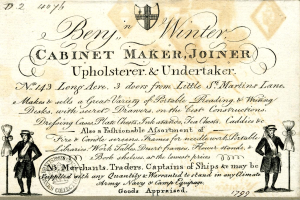 D.2 4076
Benj.n Winter,
CABINET MAKER, JOINER
Upholsterer & Undertaker.
No. 143 Long Acre, 3 doors from Little St. Martins Lane,
Makes & sells a great Variety of Portable Reading & Writing
Desks, with Secret Drawers, on the best Constructions,
Dressing Cases, Plate Chests, Tea Chests, Caddies &c
Also a Fashionable Assortment of
Fire & Candle screens, Frames for needlework, Portable
Libraries, Work Tables, frames, Flower stands, &
Book shelves at the lowest prices
NB. Merchants, Traders, Captains of Ships &c may be
Supplied with any Quantity & Warranted to stand in any Climate
Army Navy & Camp Equipage.
Goods Appraised.
1799